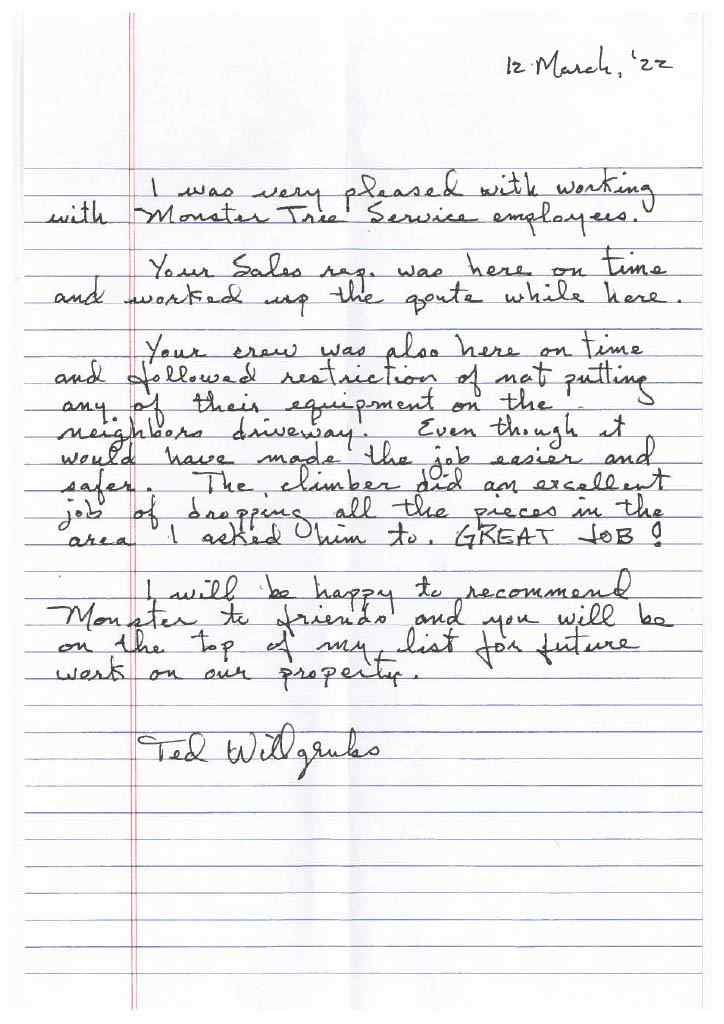 12 March, '22
I was very pleased with working
with Monster Tree Service employees.
Your Sales rep. was here on time
and worked up the qoute while here.
Your crew was also here on time
and followed restriction of not putting
any of their equipment on the
neighbors driveway. Even though it
would have made the job easier and
safer. The climber did an excellent
job of dropping all the pieces in the
area I asked him to. GREAT JOB!
I will be happy to recommend
Monster to friends and you will be
on the top of my list for future
work on our property.
Ted